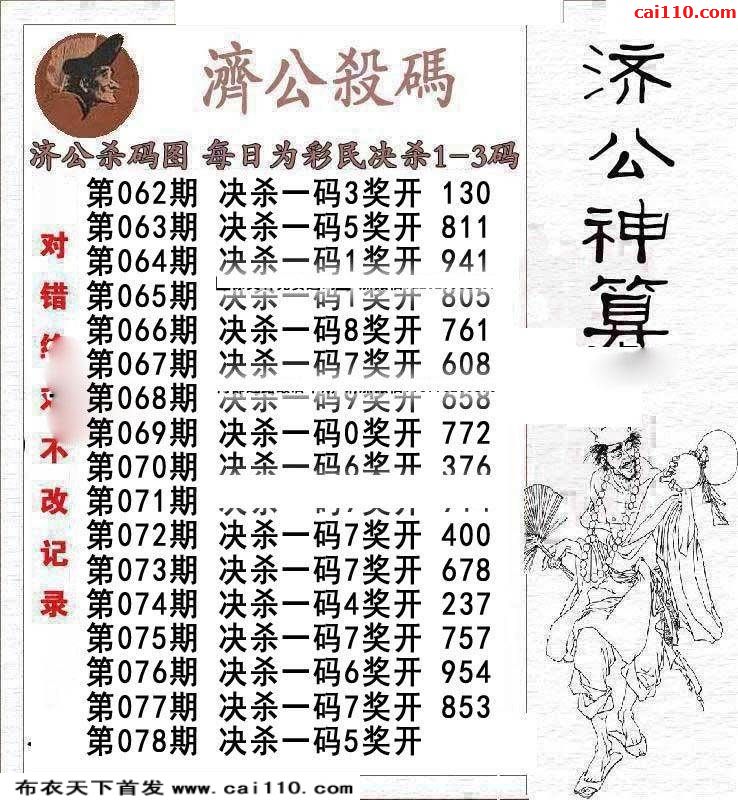 cai110.com
濟公殺碼
济公杀码图 每日为彩民决杀1-3码
第062期 决杀一码3奖开 130
第063期 决杀一码5奖开 811
第064期 决杀一码1奖开 941
第065期 决杀一码1奖开 805
第066期 决杀一码8奖开 761
第067期 决杀一码7奖开 608
第068期 决杀一码9奖开 658
第069期 决杀一码0奖开 772
第070期 决杀一码6奖开 376
第071期
第072期 决杀一码7奖开 400
第073期 决杀一码7奖开 678
第074期 决杀一码4奖开 237
第075期 决杀一码7奖开 757
第076期 决杀一码6奖开 954
第077期 决杀一码7奖开 853
第078期 决杀一码5奖开
对错
不改记录
济公神算
布衣天下首发 www.cai110.com